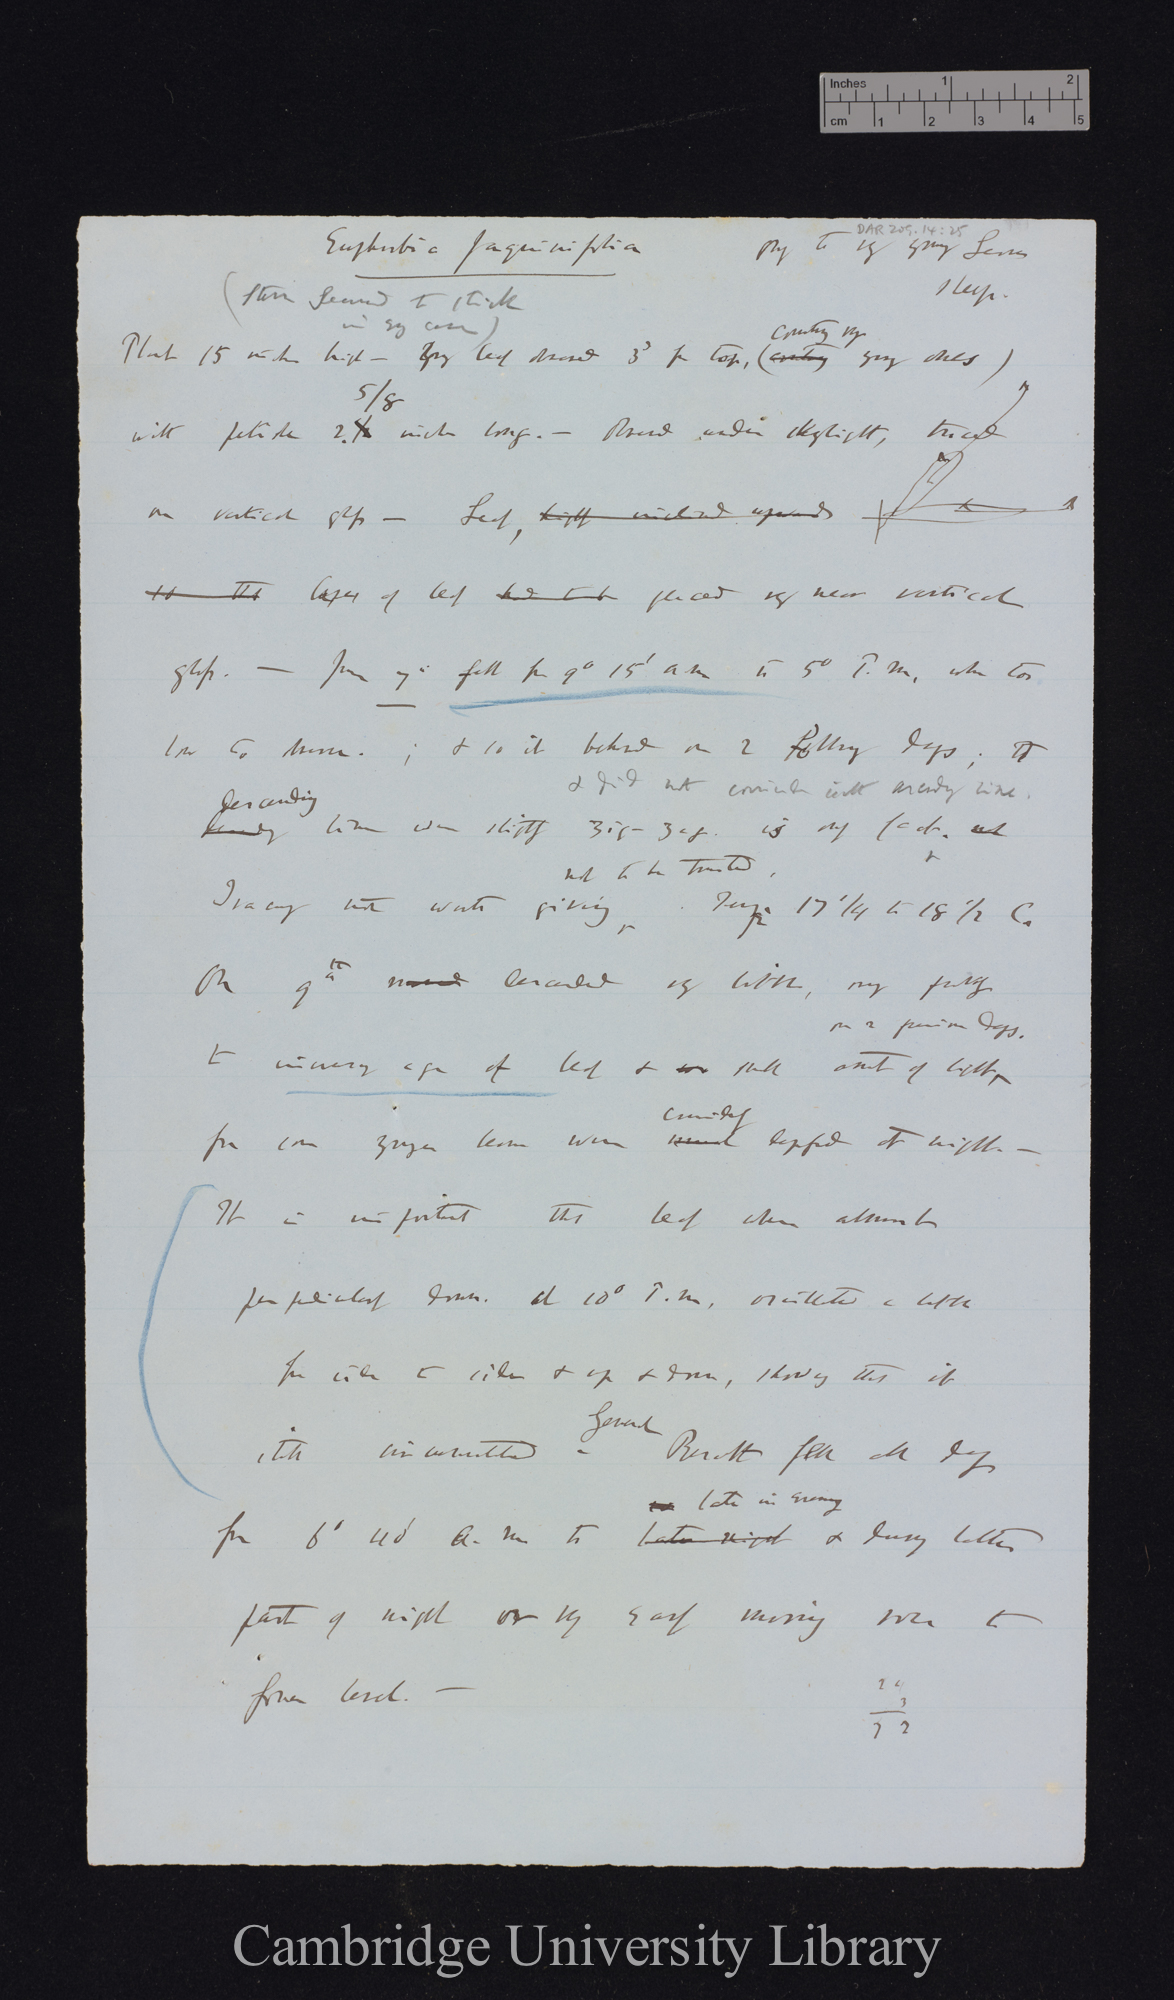 Inches 1 2
cm 1 2 3 4 5
DAR 209.14:25
Euphorbia jacquiniflia only to vy young Leaves
sleep.
(Stem secured to stick
in every case)
counting vy
Plant 15 inches high — young leaf observed 3d from top, (counting young ones)
5/8
with petiole 2. inches long. — Placed under skylight, traced
on vertical glass — Leaf, slightly inclined upwards
so that apex of leaf had to be placed very near vertical
glass. — from fell from 9° 15' a.m to 5° P.m, when too
low to observe. ; & so it behaved on 2 following days ; the
& did not coincide with ascending line.
descending
line was slightly zig-zag.
not to be trusted,
Tracing not worth giving. Temp 17 1/4 to 18 1/2 C.
On 9th descended very little, owing perhaps
on 2 previous days.
to increasing age of leaf & small amount of light,
considerably
for some younger leaves were depressed at night. —
It is important that leaf when almost
perpendicularly down. at 10° P.m, oscillated a little
from side to side & up & down, showing that it
still circumnutated
General
Result fell all day
late in evening
from 6° 40' a.m to & during latter
part of night or very early morning rose to
former level. —
24
3
72
Cambridge University Library